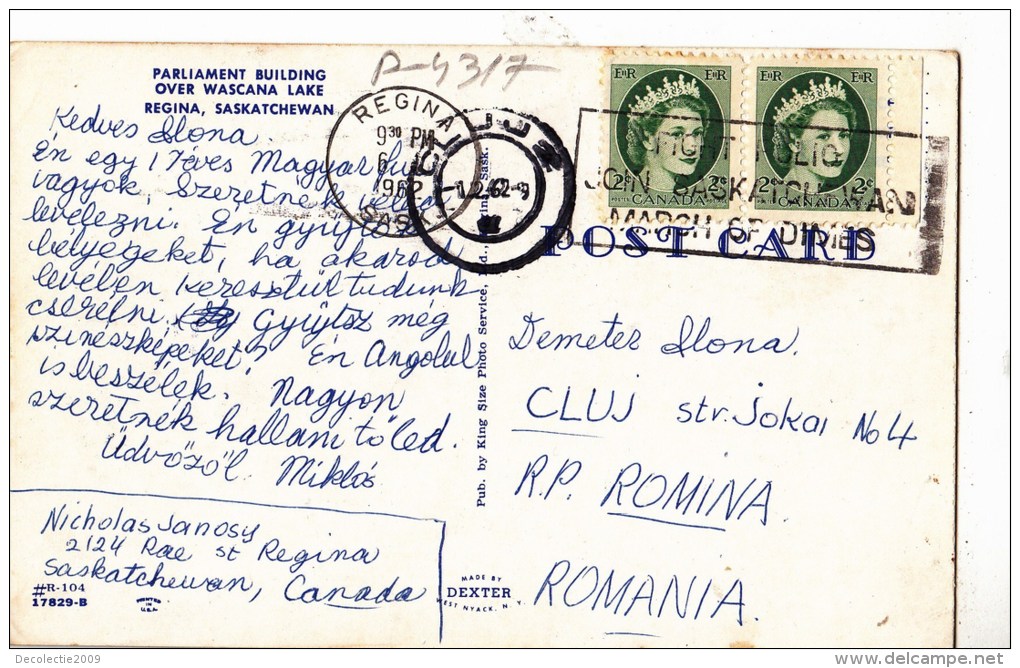 P-4317
PARLIAMENT BUILDING
OVER WASCANA LAKE
REGINA, SASKATCHEWAN
REGINA
9 30 PM
1962
SASK.
1.2.62-9
EIIR EIIR
2¢ 2¢
CANADA
EIIR EIIR
2¢ 2¢
CANADA
FIGHT POLIO
JOIN SASKATCHEWAN
MARCH OF DIMES
POST CARD
Kedves Ilona.
Én egy 17 éves Magyar fiu
vagyok. Szeretnék veled
levelezni. Én gyüjtök
bélyegeket, ha akarod
levélen keresztül tudunk
cserélni. Gyüjtsz még
szinészképeket? Én Angolul
is beszélek. Nagyon
szeretnék hallani tőled.
Üdvözöl Miklós
Nicholas Janosy
2124 Rae st Regina
Saskatchewan, Canada
#R-104
17829-B
PRINTED
IN
U.S.A.
Pub. by King Size Photo Service, Regina, Sask.
MADE BY
DEXTER
WEST NYACK, N. Y.
Demeter Ilona.
CLUJ str. Jokai No 4
R.P. ROMINA.
ROMANIA.
Decolectie2009
delcampe.net